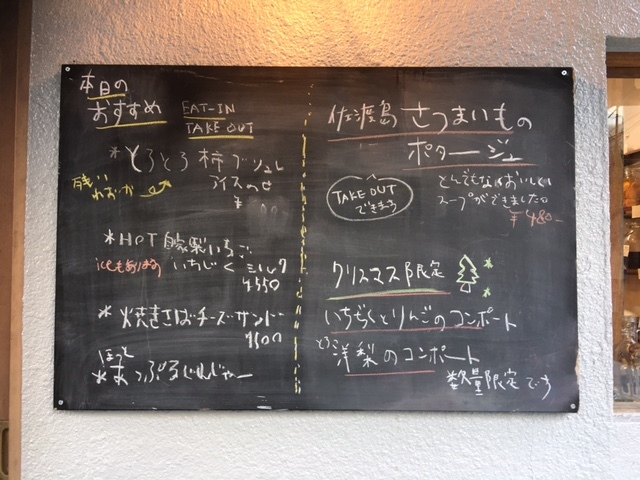 本日の
おすすめ
EAT-IN
TAKE OUT
*とろとろ柿ブリュレ
アイスのせ
¥
*HOT 自家製いちご
いちじく ミルク
¥550
*焼きさばチーズサンド
¥600
ほっと
*あっぷるじんじゃー
佐渡島 さつまいもの
ポタージュ
とんでもなくおいしい
スープができました
¥480-
TAKE OUT
できます
クリスマス限定
いちぢくとりんごのコンポート
洋梨のコンポート
数量限定です